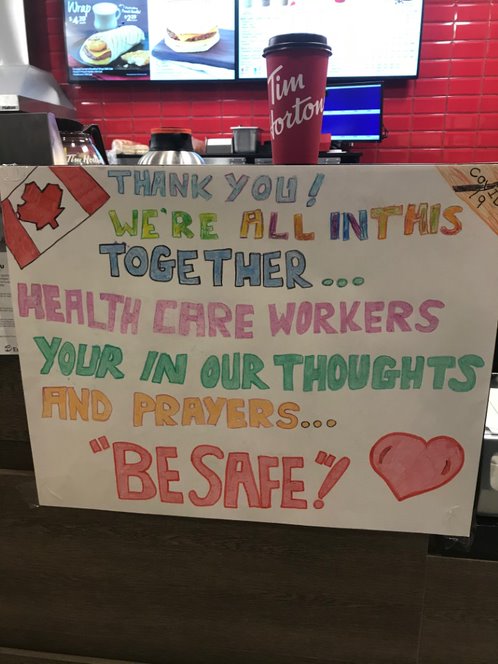 Wrap
Tim
Horton
THANK YOU!
WE'RE ALL IN THIS
TOGETHER...
HEALTH CARE WORKERS
YOUR IN OUR THOUGHTS
AND PRAYERS...
"BE SAFE"!